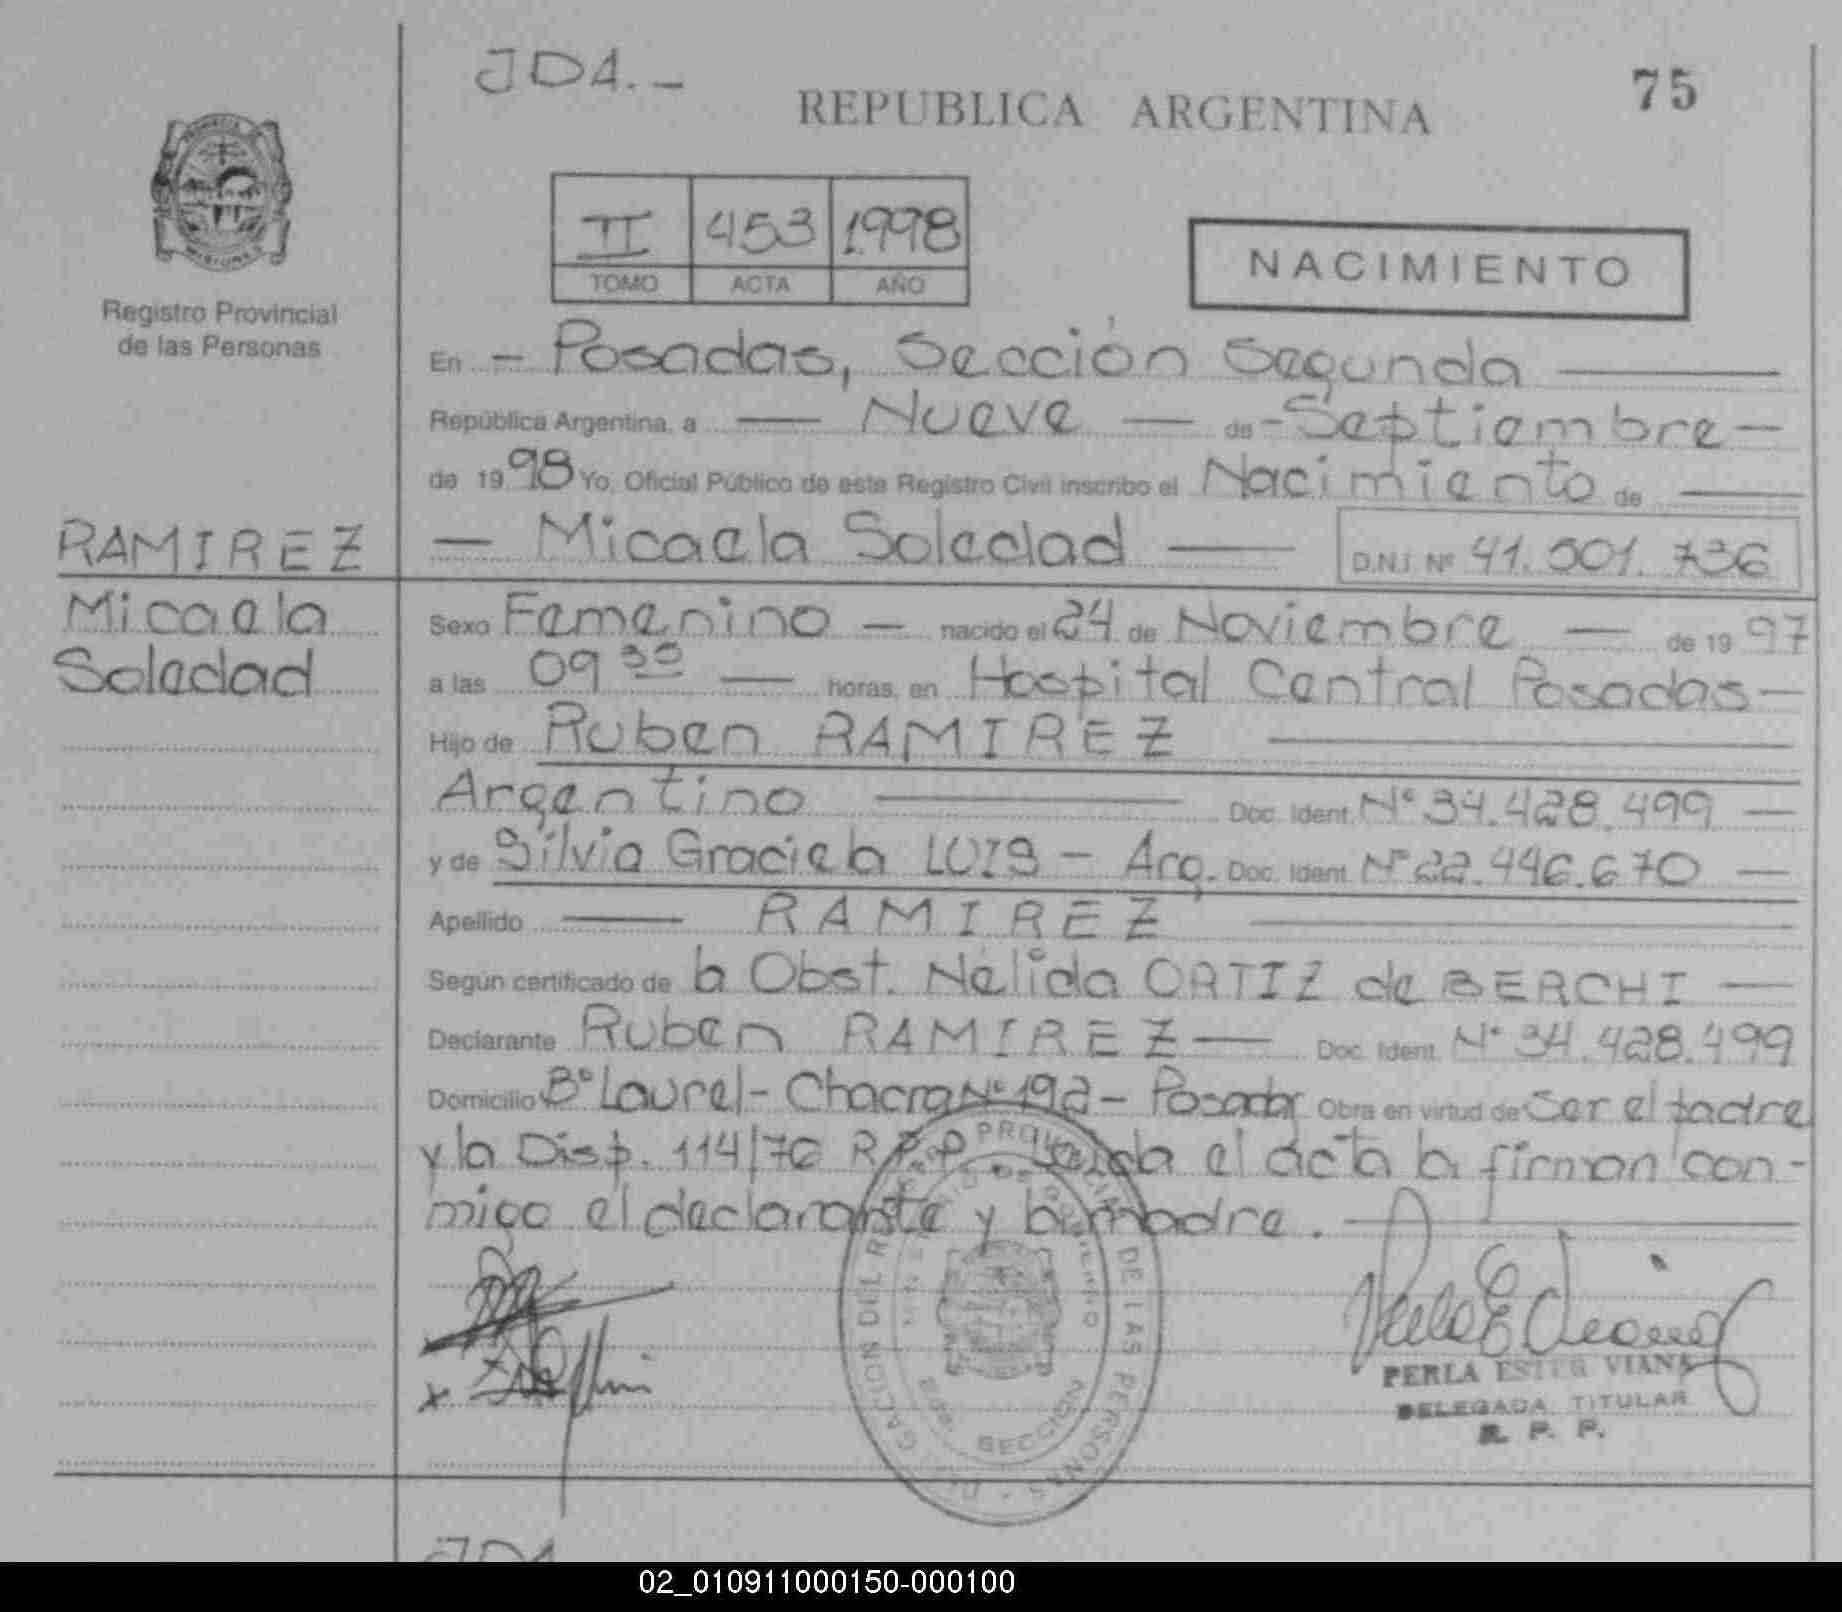 JDA.-
75
REPUBLICA ARGENTINA
II 453 1998
TOMO ACTA AÑO
NACIMIENTO
Registro Provincial
de las Personas
En - Posadas, Sección Segunda
República Argentina, a — Nueve — de - Septiembre -
de 1998 Yo, Oficial Público de este Registro Civil inscribo el Nacimiento de
RAMIREZ
Micaela
Soledad
— Micaela Soledad — D.N.I. Nº 41.501.736
Sexo Femenino — nacido el 24 de Noviembre — de 1997
a las 09 30 — horas, en Hospital Central Posadas -
Hijo de Ruben RAMIREZ
Argentino — Doc. Ident. Nº 34.428.499 —
y de Silvia Graciela LUIS - Arg. Doc. Ident. Nº 22.446.670 —
Apellido — RAMIREZ
Según certificado de la Obst. Nélida ORTIZ de BERCHI —
Declarante Ruben RAMIREZ — Doc. Ident. Nº 34.428.499
Domicilio Bº Laurel - Chacra Nº 192 - Posadas Obra en virtud de ser el padre
y la Disp. 114/76 R.P.P. Leída el acta la firman con-
migo el declarante y la madre.
DELEGACION DEL REGISTRO PROVINCIAL DE LAS PERSONAS
MINISTERIO DE GOBIERNO
2da. SECCION
PERLA ESTER VIANA
DELEGADA TITULAR
R. P. P.
JDA
02_010911000150-000100